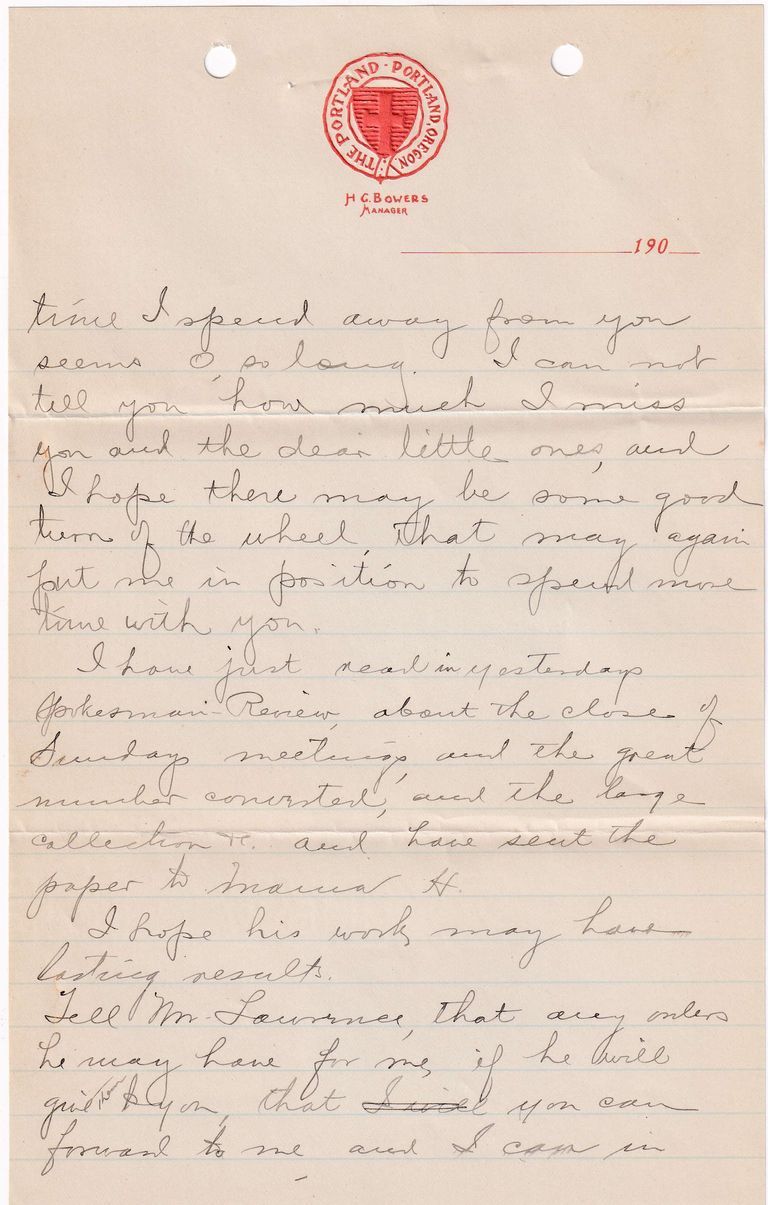 THE PORTLAND - PORTLAND, OREGON.
H C. BOWERS
MANAGER
190
time I spend away from you
seems O, so long. I can not
tell you how much I miss
you and the dear little ones, and
I hope there may be some good
turn of the wheel, that may again
put me in position to spend more
time with you.
I have just read in yesterdays
Spokesman-Review, about the close of
Sundays meetings, and the great
number converted, and the large
collection &c. and have sent the
paper to Mama H.
I hope his work, may have
lasting results.
Tell Mr Lawrence, that any orders
he may have for me, if he will
give them to you, that I will you can
forward to me and I can in